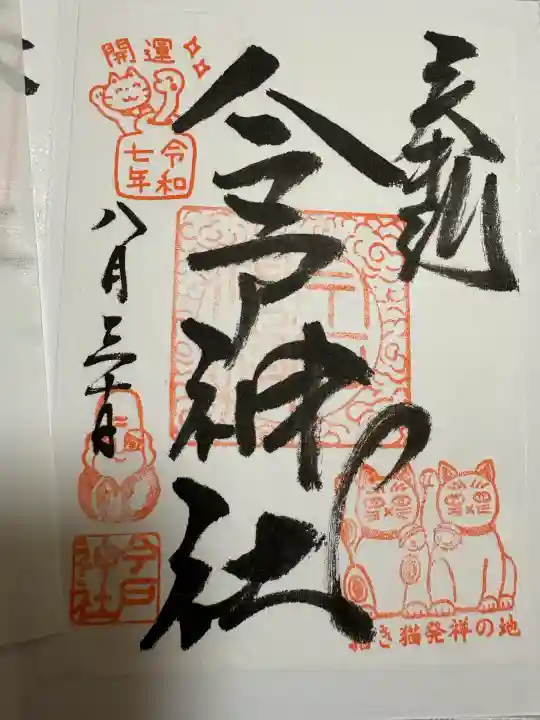 奉拝
今戸神社
開運
令和
七年
八月三十日
今戸
神社
招き猫発祥の地